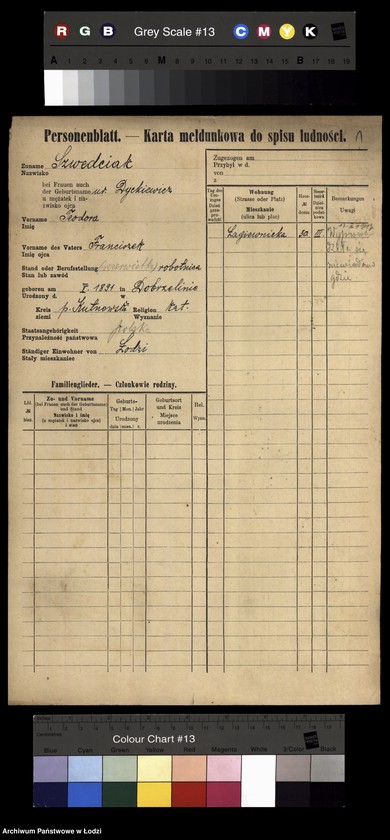 R G B Grey Scale #13 C M Y K
A 1 2 3 4 5 6 M 8 9 10 11 12 13 14 15 B 17 18 19
Personenblatt. — Karta meldunkowa do spisu ludności.
Zuname Szwedciak
Nazwisko
bei Frauen auch
der Geburtsname ur. Dyckiewicz
u mężatek i na-
zwisko ojca
Vorname Teodora
Imię
Vorname des Vaters Franciszek
Imię ojca
Stand oder Berufsstellung robotnica
Stan lub zawód
geboren am X. 1891 in Dobrzelinie
Urodzony d. w
Kreis p. Kutnowski Religion kat.
ziemi Wyznanie
Staatsangehörigkeit polska
Przynależność państwowa
Ständiger Einwohner von Łodzi
Stały mieszkaniec
Zugezogen am
Przybył w d.
von
z
Tag des
Wohnung
(Strasse oder Platz)
Mieszkanie
(ulica lub plac)
Haus
№
domu
Bemerkungen
Uwagi
Łagiewnicka 30. III.
niewiadomo
gdzie
Familienglieder. — Członkowie rodziny.
Lfd.
№
bież.
Zu- und Vorname
(bei Frauen auch der Geburtsname)
und Stand
Nazwisko i imię
(u mężatek i nazwisko ojca)
i stan
Geburts-
Tag | Mon. | Jahr
Urodzony
dnia | mies. | r.
Geburtsort
und Kreis
Miejsce
urodzenia
Rel.
Wyzn.
Colour Chart #13
Blue Cyan Green Yellow Red Magenta White 3/Color Black
Archiwum Państwowe w Łodzi